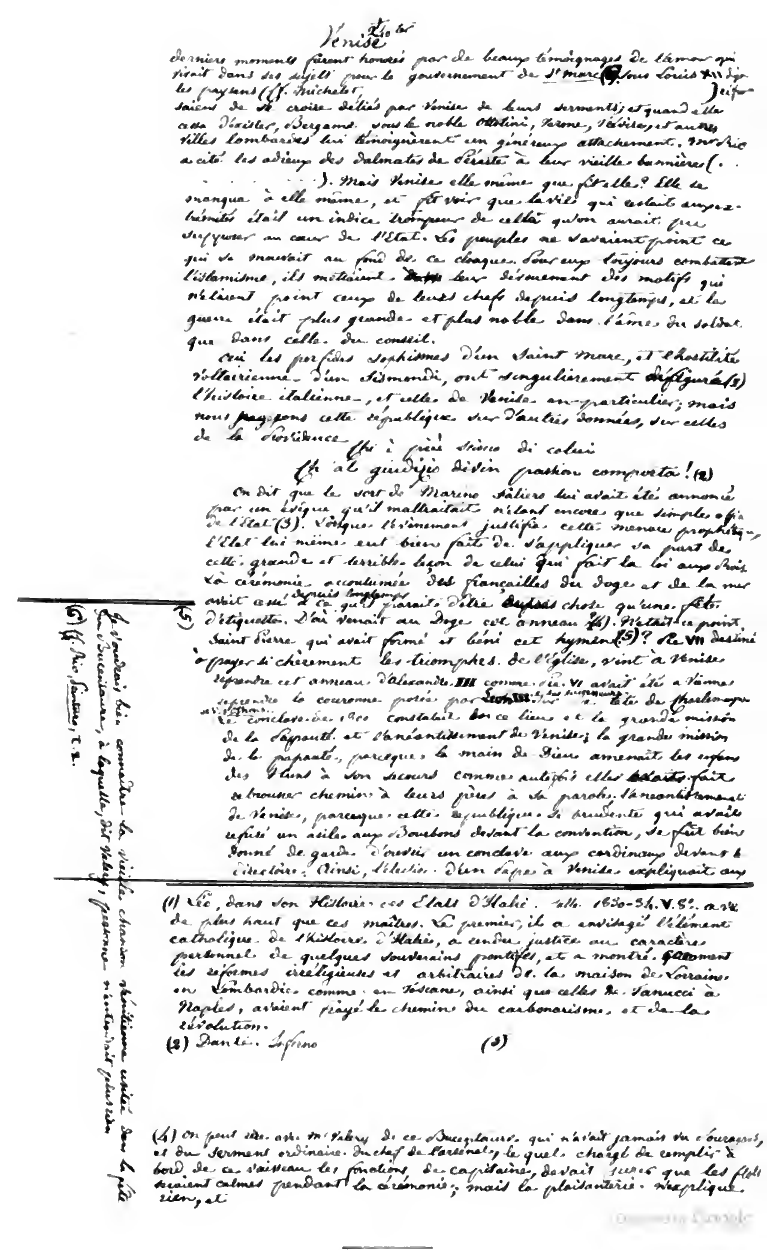 Venise
derniers moments furent honorés par de beaux témoignages de l'amour qui
vivait dans ses sujets pour le gouvernement de St marc. sous Louis XII
les paysans (Cf. Michelet,
saient de se croire déliés par Venise de leurs serments; et quand elle
cessa d'exister, Bergame sous le noble Ottolini, Verone, Trévise, et autres
villes lombardes lui témoignèrent un généreux attachement. Mr Rio
a cité les adieux des dalmates de Péraste à leur vieille bannière (. .
. . . . .). Mais Venise elle même que fit elle? Elle se
manqua à elle même, et fit voir que la vie qui restait aux ex-
trémités était un indice trompeur de celle qu'on aurait pu
supposer au cœur de l'Etat. Les peuples ne savaient point ce
qui se mouvait au fond de ce cloaque. Pour eux toujours combattant
l'islamisme, ils mettaient leur dévouement des motifs qui
n'étaient point ceux de leurs chefs depuis longtemps, et la
guerre était plus grande et plus noble dans l'âme du soldat
que dans celle du conseil.
Oui les perfides sophismes d'un Saint Marc, et l'hostilité
voltairienne d'un Sismondi, ont singulièrement défiguré (1)
l'histoire italienne, et celle de Venise en particulier; mais
nous jugeons cette république sur d'autres données, sur celles
de la Providence
Chi è più scioco di colui
Ch'al giudizio divin passion comporta! (2)
On dit que le sort de Marino Faliero lui avait été annoncé
par un évêque qu'il maltraitait n'étant encore que simple
de l'Etat (3). Lorsque l'évènement justifia cette menace prophétique,
l'Etat lui même eut bien fait de s'appliquer sa part de
cette grande et terrible leçon de celui qui fait la loi aux Rois
La cérémonie accoutumée des fiançailles du doge et de la mer
avait cessé depuis longtemps à ce qu'il parait d'être autre chose qu'une fête
d'étiquette. D'où venait au Doge cet anneau (4). N'était-ce point
Saint Pierre qui avait formé et béni cet hymen (5)? Pie VII destiné
à payer si chèrement les triomphes de l'Eglise, vint à Venise
reprendre cet anneau d'Alexandre III comme Pie VI avait été à Vienne
reprendre la couronne posée par Léon III et ses successeurs sur la tête de Charlemagne
Le conclave de 1800 constatait en ce lieu et la grande mission
de la Papauté et l'anéantissement de Venise; la grande mission
de la papauté, parceque la main de Dieu amenait les enfans
des Huns à son secours comme autrefois elle fait
rebrousser chemin à leurs pères à sa parole. l'anéantissement
de Venise, parceque cette république si prudente qui avait
refusé un asile aux Bourbons devant la convention, se fut bien
donné de garde d'ouvrir un conclave aux cardinaux devant le
directoire. Ainsi, l'élection d'un Pape à Venise expliquait aux
(5)
(6) Cf. Rio, Sanuto, t. 2.
Je voudrais bien connaître la vieille chanson vénitienne usitée dans la fête
du Bucentaure, à laquelle, dit Valery, personne n'entendait plus rien
(1) Léo, dans son Histoire des Etats d'Italie. 1830-34. V. 8º. a vu
de plus haut que ces maîtres. Le premier, il a envisagé l'élément
catholique de l'histoire d'Italie, a rendu justice au caractère
personnel de quelques souverains pontifes, et a montré comment
les réformes irréligieuses et arbitraires de la maison de Lorraine
en Lombardie comme en Toscane, ainsi que celles de Tanucci à
Naples, avaient frayé le chemin du carbonarisme et de la
révolution.
(2) Dante. Inferno
(3)
(4) On peut rire avec Mr Valery de ce Bucentaure qui n'avait jamais vu d'ouragans,
et du serment ordinaire du chef de l'arsenal, le quel chargé de remplir à
bord de ce vaisseau les fonctions de capitaine, devait jurer que les flots
seraient calmes pendant la cérémonie; mais la plaisanterie n'explique
rien, et